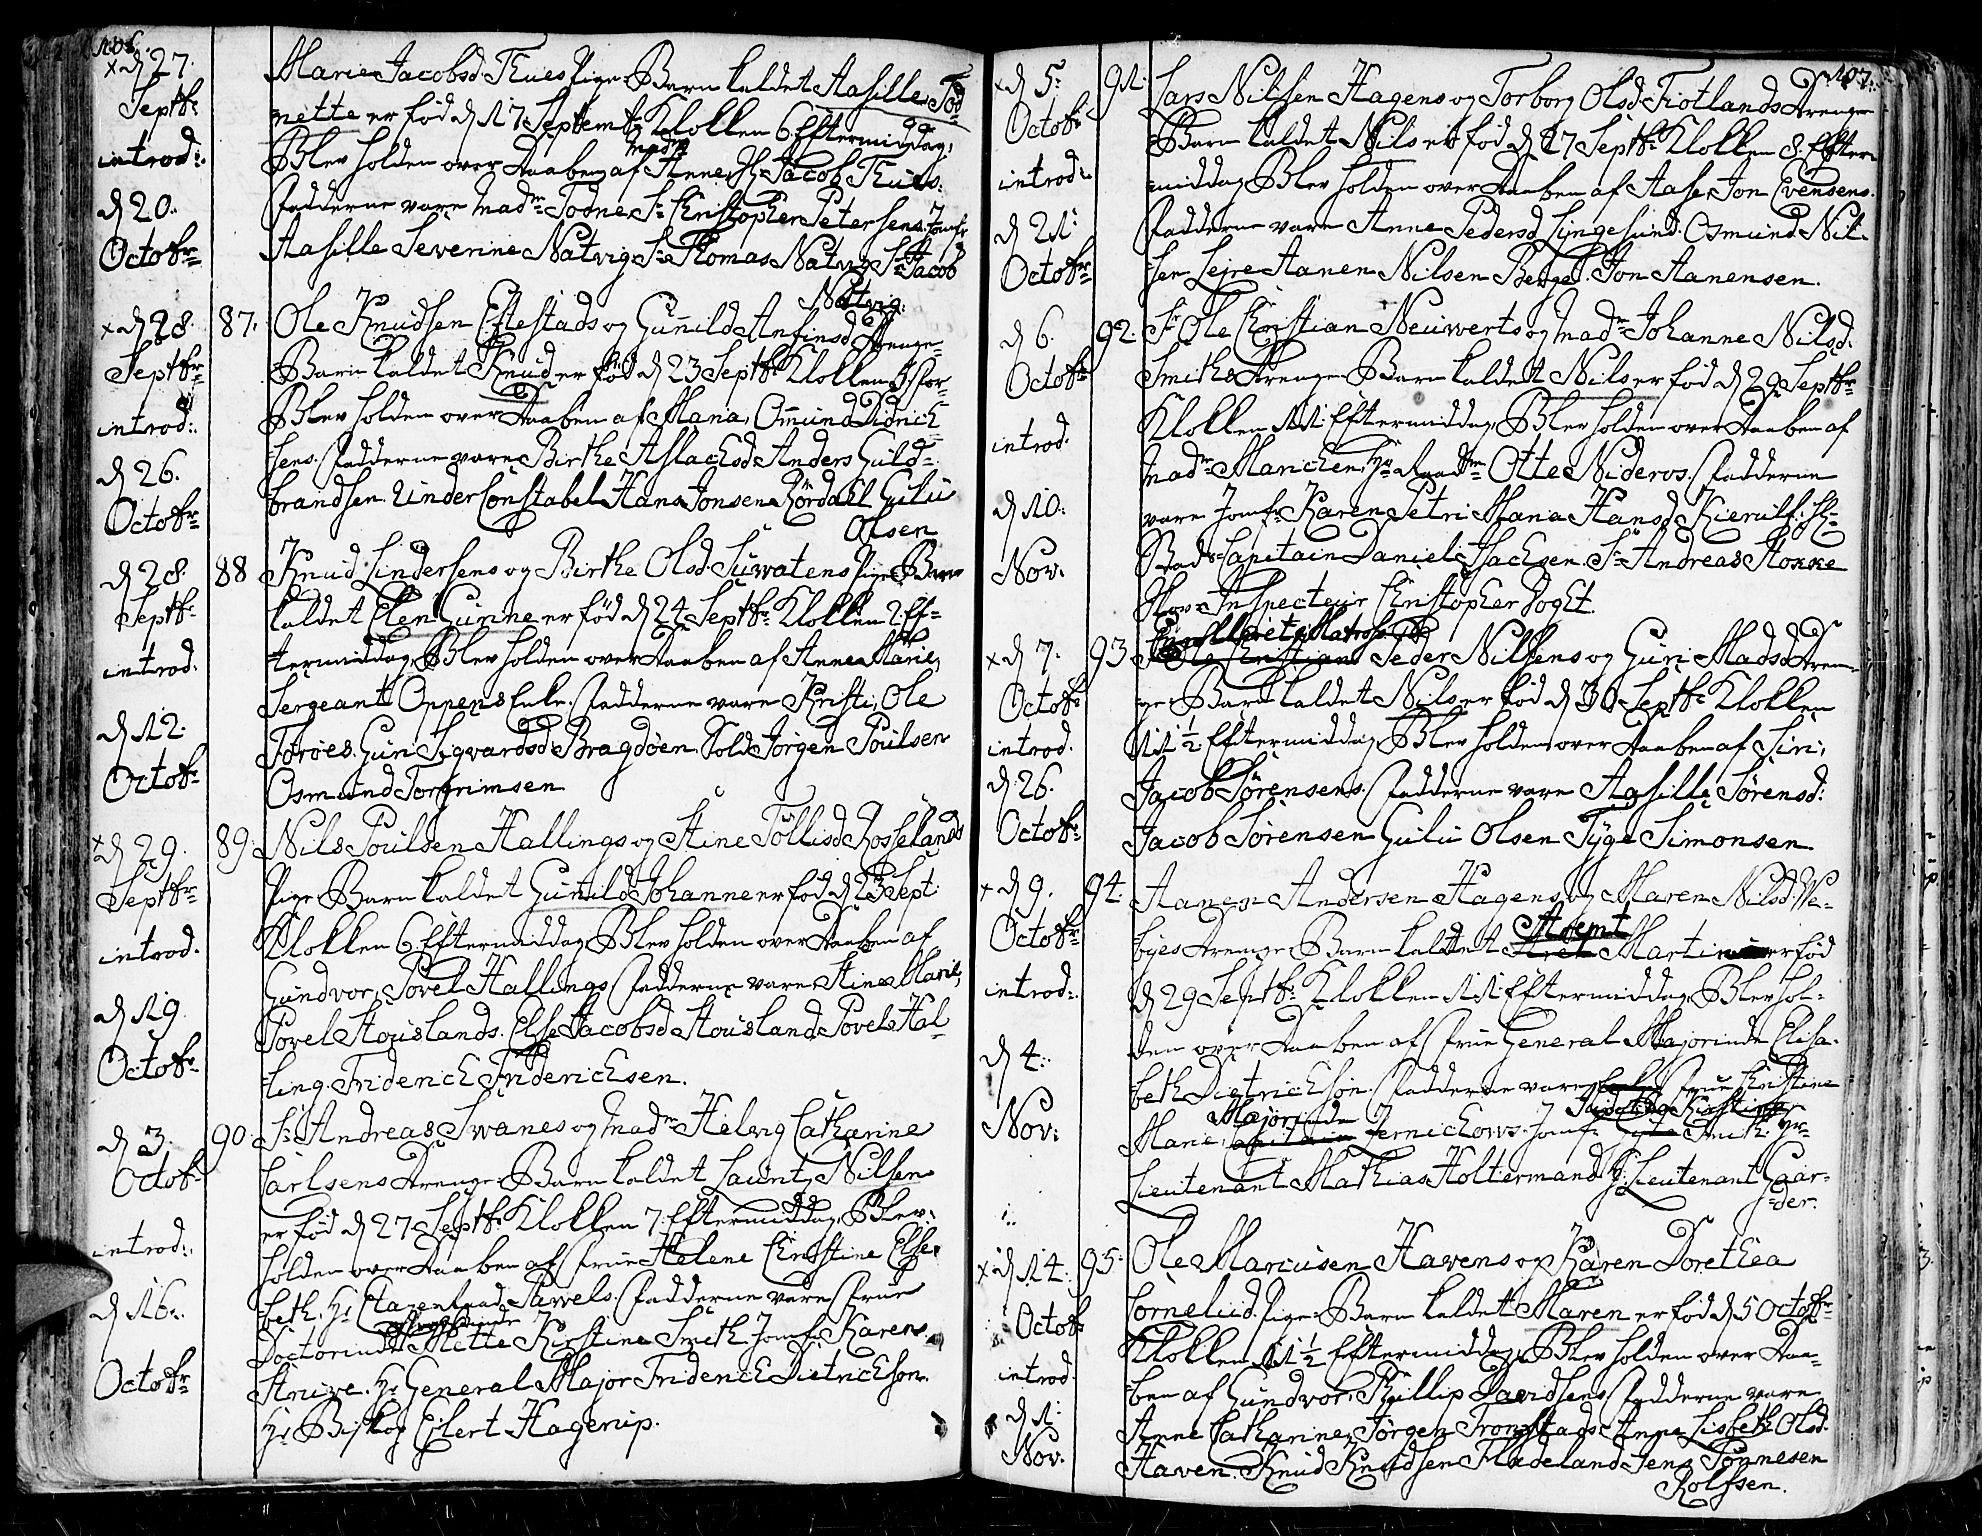 106.
× d 27. Septbr introd: d 20. Octobr
Marie Jacobsd Thues Pige Barn kaldet Aasille Tod
nette er fød d 17 Septembr Klokken 6 Eftermiddag,
Blev holden over Daaben af Anne Madm Jacob Thues.
Fadderne vare Madm Todne Sr Christopher Petersens Jomfr
Aasille Severine Natvig Sr Thomas Natvig Sr Jacob
Natvig.
× d 28. Septbr introd: d 26. Octobr
87. Ole Knudsen Eftestads og Gunnild Anfinsd Drenge
Barn kaldet Knud er fød d 23 Septbr Klokken 9 For-
Blev holden over Daaben af Mana, Omund Didrich
sens. Fadderne vare Birthe Aslachsd Anders Guld-
brandsen. Under Constabel Hans Jonsen Rördahl Gulu
Olsen
d 28. Septbr introd. d 12. Octobr
88 Knud Lindersens og Birthe Olsd. Suwatens Pige Barn
kaldet Elen Gunne er fød d 24 Septbr Klokken 2 Ef-
termiddag, Blev holden over Daaben af Anne Marie,
Sergeant Oppens Enke. Fadderne vare Kristi, Ole
Toroes. Guri Sigvardsd Bragdøen Sold Jørgen Poulsen
Osmund Torgrimsen
× d 29. Septbr introd. d 19. Octobr
89. Nils Poulden Hallings og Stine Tollisd Rosselands
Pige Barn kaldet Gunild Johanne er fød d 23 Sept.
Klokken 6 Eftermiddag Blev holden over Daaben af
Gundvor, Povel Hallings Fadderne vare Stine Marie,
Povel Houslands. Else Jacobsd Housland Povel Hal-
ling. Friderich Friderichsen.
d 3. Octob introd: d 16. Octobr
90. Sr Andreas Swanes og Madm Helvig Catharine
Carlsens Drenge Barn kaldet Lauritz Nilsen
er fød d 27 Septbr Klokken 7. Eftermiddag, Blev
holden over Daaben af Frue Helene Christine Else-
beth. Hr Etazenraad Pawels. Fadderne vare Frue
Doctorinde Mette Kirstine Smith Jomfr. Karen
Struwe. Hr General Major Friderich Dietrichson.
Hr Biskop Eilert Hagerup.
107.
× d 5. Octobr introd: d 21. Octobr
91. Lars Nilsen Hagens og Torborg Olsd Fiotlands Drenge
Barn kaldet Nils er fød d 17 Septbr Klokken 8. Efter
middag Blev holden over Daaben af Aase, Jon Evensens.
Fadderne vare Anne Pedersd Lyngesund. Osmund Nil-
sen Leire Aanen Nilsen Berge. Jon Aanensen.
d 6. Octobr introd. d 10. Nov.
92. Sr Ole Christian Neuwerts og Madm Johanne Nilsd.
Smiths Drenge Barn kaldet Nils er fød d 29 Septbr
Klokken 11 Eftermiddag, Blev holden over Daaben af
Madm Marichen, Hr Raadm Otte Nideros. Fadderne
vare Jomfr Karen Petri Maria Hansd Kierulf. Hr
Stads Capitain Daniel Isachsen. Sr Andreas Stokke
Skov Inspecteur Christopher Vogt.
× d 7. Octobr introd. d 26. Octobr
93. Peder Nilsens og Guri Madsd Dren-
ge Barn kaldet Nils er fød d 30 Septbr Klokken
11 1/2 Eftermiddag Blev holden over Daaben af Siri,
Jacob Sørensens. Fadderne vare Aasille Sørensd.
Jacob Sørensen Gulu Olsen Tÿge Simonsen
× d 9. Octobr introd: d 4. Nov:
94. Aanen Andersen Hagens og Maren Nilsd. We-
byes Drenge Barn kaldet Arent Martin er fød
d 29 Septbr Klokken 11 Eftermiddag, Blev hol-
den over Daaben af Frue General Majorinde Elisa-
beth Dietrichson. Fadderne vare Frue Christine
Marie, Majorinde Jernichows. Jomfr. Smith. Hr
Lieutenant Mathias Holtermand Hr Lieutenant Gaar-
der.
× d 14. Octob introd d 1: Nov.
95. Ole Marcusen Havens og Karen Dorethea
Corneliid. Pige Barn kaldet Maren er fød d 5 Octobr
Klokken 11 1/2 Eftermiddag, Blev holden over Daa-
ben af Gundvor, Phillip Davidsens Fadderne vare
Anne Catharine, Jørgen Tronstads Anne Lisbeth Olsd.
Haven. Knud Knudsen Fladeland Jens Tønnesen
Rolfsen.